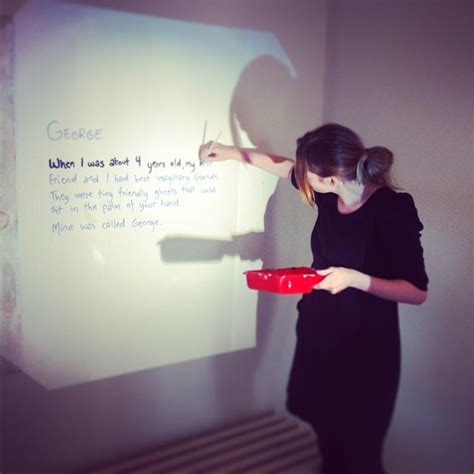 GEORGE
When I was about 4 years old, my best
friend and I had best imaginary friends.
They were tiny friendly ghosts that could
sit in the palm of your hand.
Mine was called George.